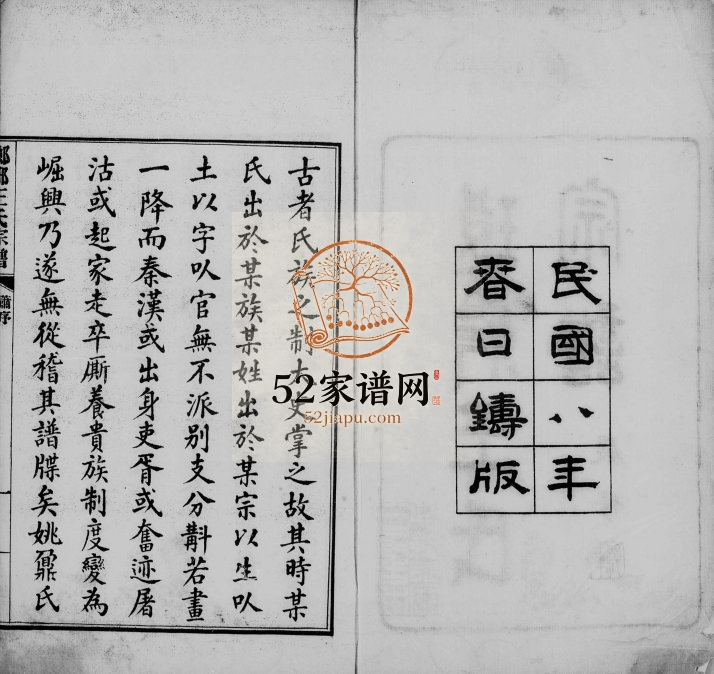 民國八年
春日鑄版
古者氏族之制太史掌之故其時某
氏出於某族某姓出於某宗以生以
土以字以官無不派別支分斠若畫
一降而秦漢或出身吏胥或奮迹屠
沽或起家走卒廝養貴族制度變為
崛興乃遂無從稽其譜牒矣姚鼐氏
王氏宗譜
蕭序
52家谱网
52jiapu.com